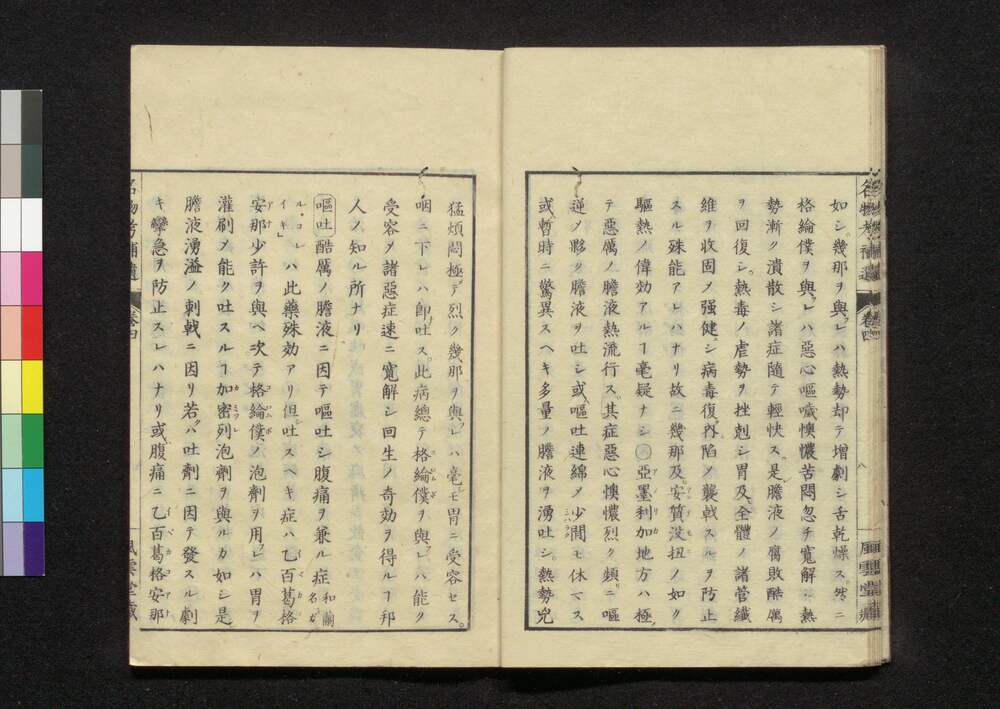 如シ幾那ヲ與レハ熱勢却テ增劇シ舌乾燥ス然ニ
格綸僕ヲ與レハ惡心嘔噦懊憹苦悶忽チ寬解シ熱
勢漸ク潰散シ諸症隨テ輕快ス是膽液ノ腐敗酷厲
ヲ回復シ熱毒ノ虐勢ヲ挫剋シ胃及全體ノ諸管纖
維ヲ收固メ强健シ病毒復内陷メ襲戟スルヲ防止
スル殊能アレハナリ故ニ幾那及安質没扭ノ如ク
驅熱ノ偉効アルヿ毫疑ナシ○亞墨利加地方ハ極
テ惡厲ノ膽液熱流行ス其症惡心懊憹烈ク頻ニ嘔
逆メ夥ク膽液ヲ吐シ或嘔吐連綿メ少間モ休マス
或暫時ニ驚異スヘキ多量ノ膽液ヲ湧吐シ熱勢兇
名物考補遺
卷四
八
風雲堂藏
猛煩悶極テ烈ク幾那ヲ與レハ毫モ胃ニ受容セス
咽ニ下レハ卽吐ス此病總テ格綸僕ヲ與レハ能ク
受容メ諸惡症速ニ寬解シ回生ノ奇効ヲ得ルヿ邦
人ノ知ル所ナリ
嘔吐酷厲ノ膽液ニ因テ嘔吐シ腹痛ヲ兼ル症和蘭名ガ
ル、コレイキ」ハ此藥殊効アリ但吐スヘキ症ハ乙百葛格
安那少許ヲ與ヘ次テ格綸僕ノ泡劑ヲ用レハ胃ヲ
灌刷メ能ク吐スルヿ加密列泡劑ヲ與ルカ如シ是
膽液湧溢ノ刺戟ニ因リ若ハ吐劑ニ因テ發スル劇
キ攣急ヲ防止スレハナリ或腹痛ニ乙百葛格安那
名物考補遺
卷四
風雲堂藏